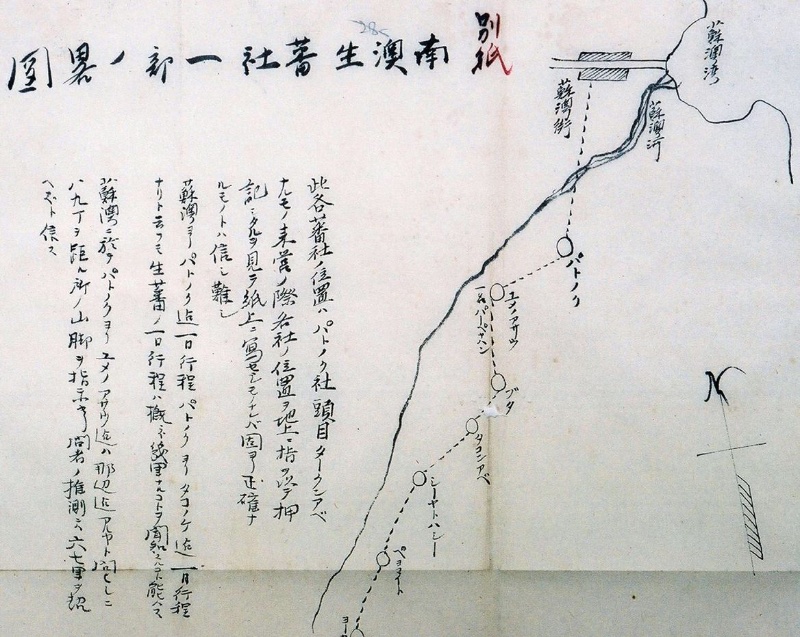 別紙
南澳生蕃社一部ノ畧圖
蘇澳湾
蘇澳河
蘇澳街
パトノク
ユメノアサウ
一名パーペナハン
ブタ
タヨンアベ
シーヤトハシー
N
此各蕃社ノ位置ハパトノク社頭目タークンアベ
ナルモノ来営ノ際各社ノ位置ヲ地上ニ指ヲ以テ押
記シタルヲ見テ紙上ニ写セシモノナレバ固ヨリ正確ナ
ルモノトハ信シ難シ
蘇澳ヨリパトノク迄一日行程パトノクヨリタコノケ迄一日行程
ナリト云フモ生蕃ノ一日行程ハ概ネ幾里ナルコトヲ聞知スルコト能ハス
蘇澳ニ於テパトノクヨリユメノアサウ迄ハ那辺迄アルヤト問ヒシニ
八九丁ヲ距ル所ノ山脚ヲ指示キ問者ノ推測ニ六七里ヲ
ヘズト信ス